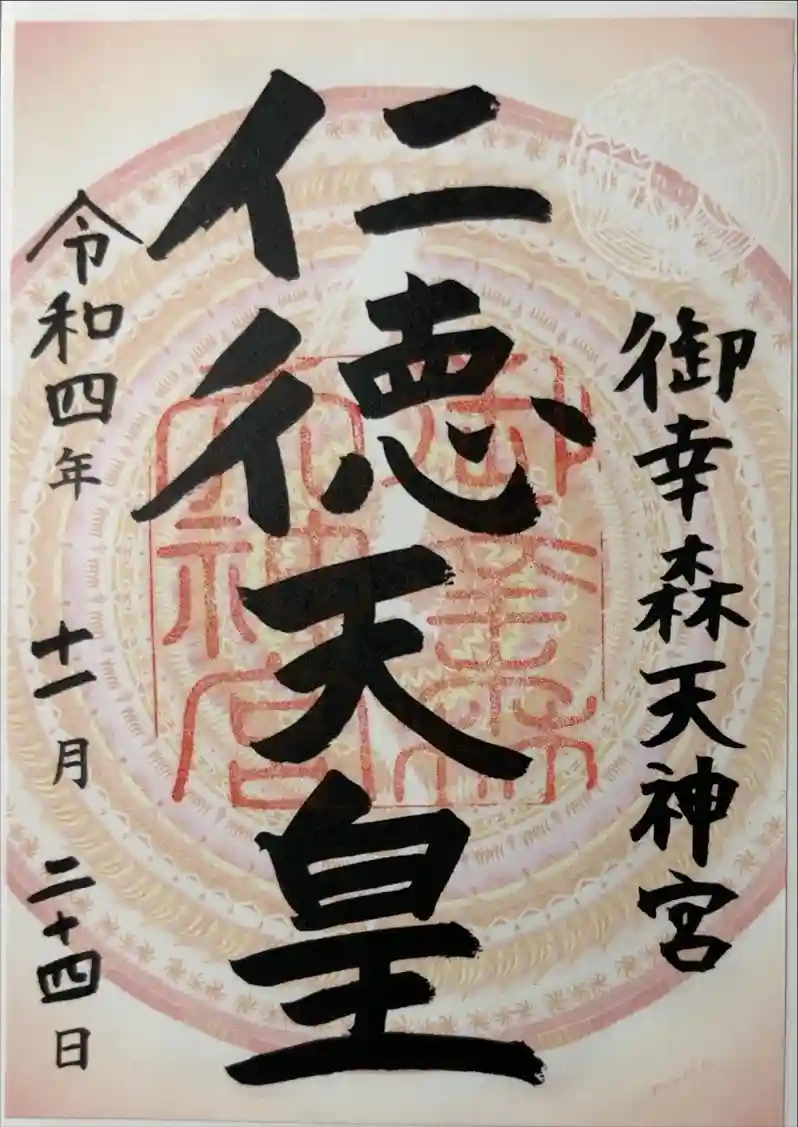 御幸森天神宮
仁徳天皇
令和四年 十一月 二十四日
御幸森天神宮